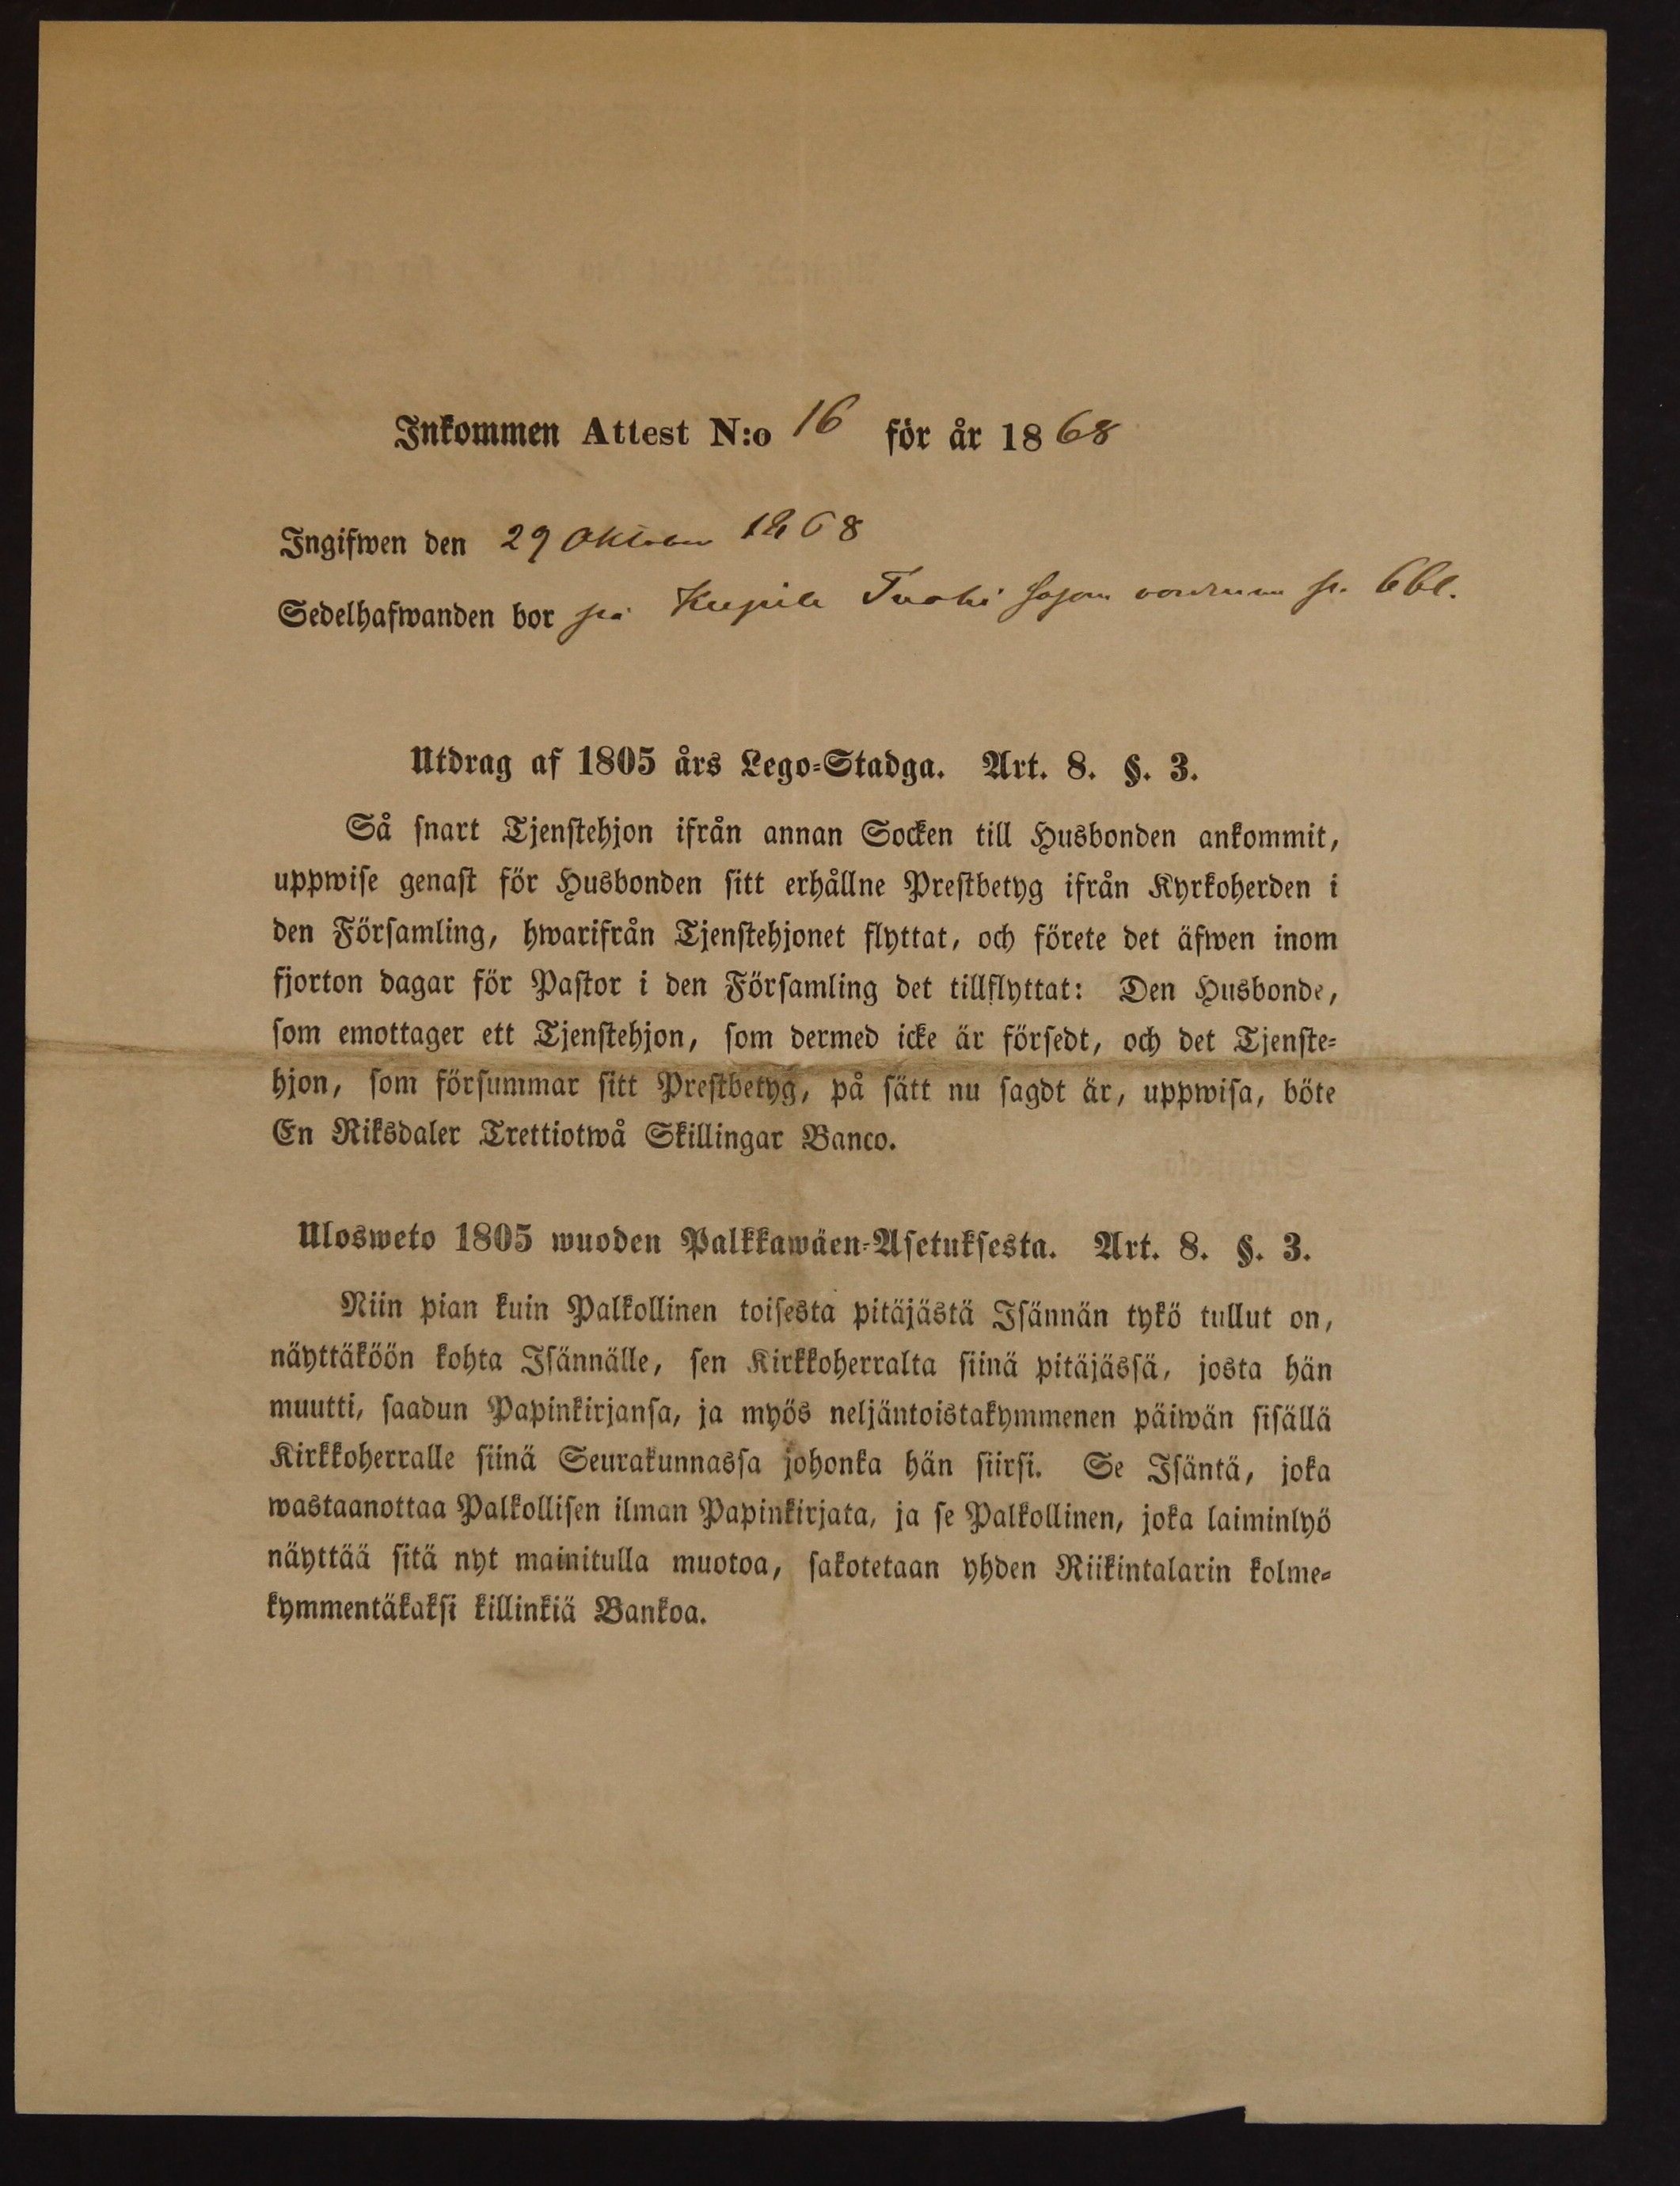 Inkommen Attest N:o 16 för år 1868
Ingifwen den 29 Oktober 1868
Sedelhafwanden bor på
Utdrag af 1805 års Lego-Stadga. Art. 8. §. 3.
Så snart Tjenstehjon ifrån annan Socken till Husbonden ankommit,
uppwise genast för Husbonden sitt erhållne Prestbetyg ifrån Kyrkoherden i
den Församling, hwarifrån Tjenstehjonet flyttat, och förete det äfwen inom
fjorton dagar för Pastor i den Församling det tillflyttat: Den Husbonde,
som emottager ett Tjenstehjon, som dermed icke är försedt, och det Tjenste-
hjon, som försummar sitt Prestbetyg, på sätt nu sagdt är, uppwisa, böte
En Riksdaler Trettiotwå Skillingar Banco.
Ulosweto 1805 wuoden Palkkawäen-Asetuksesta. Art. 8. §. 3.
Niin pian kuin Palkollinen toisesta pitäjästä Isännän tykö tullut on,
näyttäköön kohta Isännälle, sen Kirkkoherralta siinä pitäjässä, josta hän
muutti, saadun Papinkirjansa, ja myös neljäntoistakymmenen päiwän sisällä
Kirkkoherralle siinä Seurakunnassa johonka hän siirsi. Se Isäntä, joka
wastaanottaa Palkollisen ilman Papinkirjata, ja se Palkollinen, joka laiminlyö
näyttää sitä nyt mainitulla muotoa, sakotetaan yhden Riikintalarin kolme-
kymmentäkaksi killinkiä Bankoa.